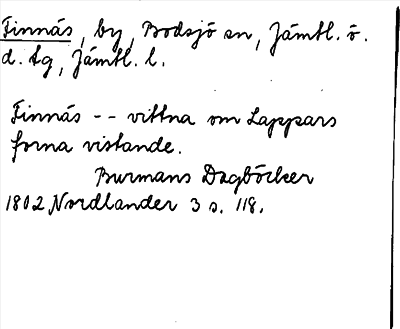 Finnäs, by, Bodsjö sn, Jämtl. ö.
d. tg, Jämtl. l.
Finnäs -- vittna om Lappars
forna vistande.
Burmans Dagböcker
1802 Nordlander 3 s. 118.